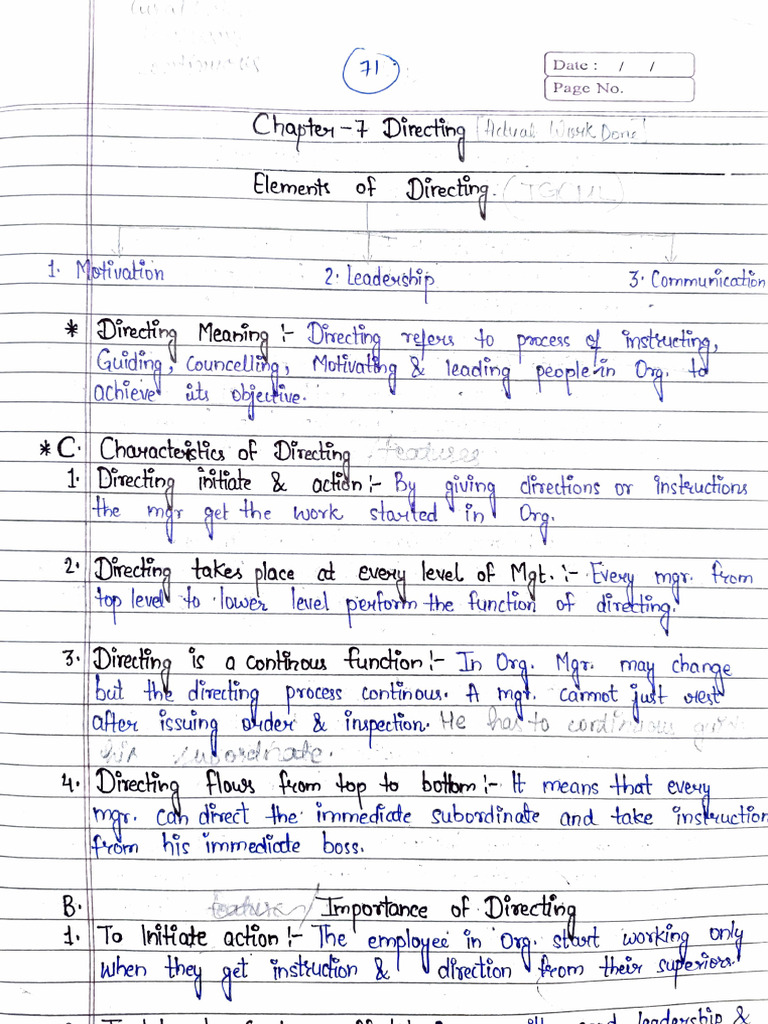 71
Date : / /
Page No.
Chapter-7 Directing [Actual Work Done]
Elements of Directing.
1. Motivation 2. Leadership 3. Communication
* Directing Meaning :- Directing refers to process of instructing,
Guiding, Councelling, Motivating & leading people in Org. to
achieve its objective.
* C. Characteristics of Directing features
1. Directing initiate & action :- By giving directions or instructions
the mgr get the work started in Org.
2. Directing takes place at every level of Mgt. :- Every mgr. from
top level to lower level perform the function of directing.
3. Directing is a continous function :- In Org. Mgr. may change
but the directing process continous. A mgr. cannot just rest
after issuing order & inspection. He has to continuous
his subordinate.
4. Directing flows from top to bottom :- It means that every
mgr. can direct the immediate subordinate and take instruction
from his immediate boss.
B. feature / Importance of Directing
1. To Initiate action :- The employee in Org. start working only
when they get instruction & direction from their superiors.
leadership &